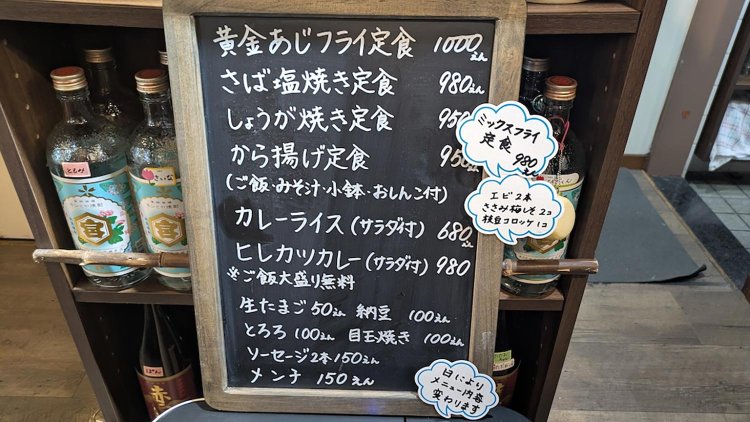 黄金あじフライ定食 1000えん
さば塩焼き定食 980えん
しょうが焼き定食 950
から揚げ定食 950
(ご飯・みそ汁・小鉢・おしんこ付)
カレーライス(サラダ付) 680えん
ヒレカツカレー(サラダ付) 980
※ご飯大盛り無料
生たまご50えん 納豆 100えん
とろろ100えん 目玉焼き 100えん
ソーセージ2本150えん
メンチ 150えん
ミックスフライ
定食 980えん
エビ2本
ささみ梅しそ2コ
枝豆コロッケ1コ
日により
メニュー内容
変わります
宮
宮
赤